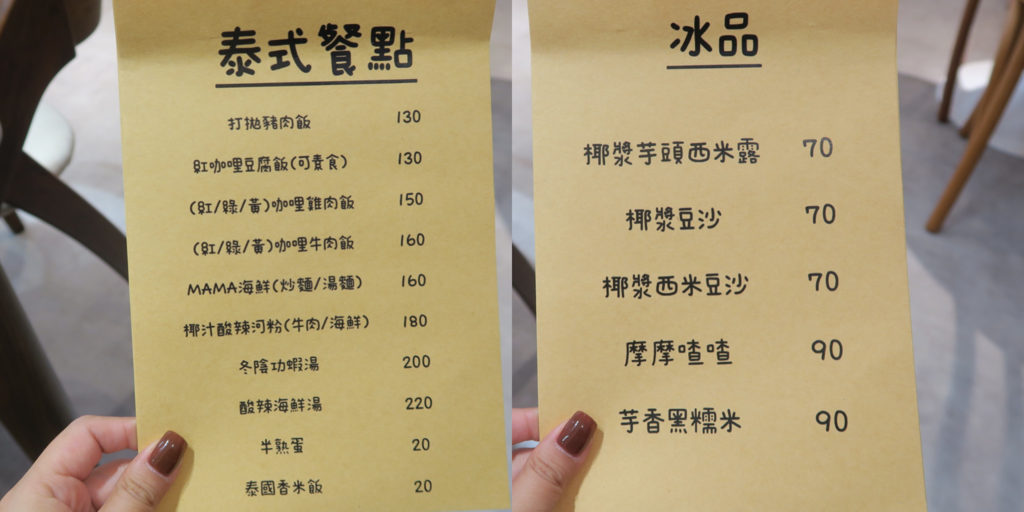 泰式餐點
打拋豬肉飯 130
紅咖哩豆腐飯(可素食) 130
(紅/綠/黃)咖哩雞肉飯 150
(紅/綠/黃)咖哩牛肉飯 160
MAMA海鮮(炒麵/湯麵) 160
椰汁酸辣河粉(牛肉/海鮮) 180
冬陰功蝦湯 200
酸辣海鮮湯 220
半熟蛋 20
泰國香米飯 20
冰品
椰漿芋頭西米露 70
椰漿豆沙 70
椰漿西米豆沙 70
摩摩喳喳 90
芋香黑糯米 90